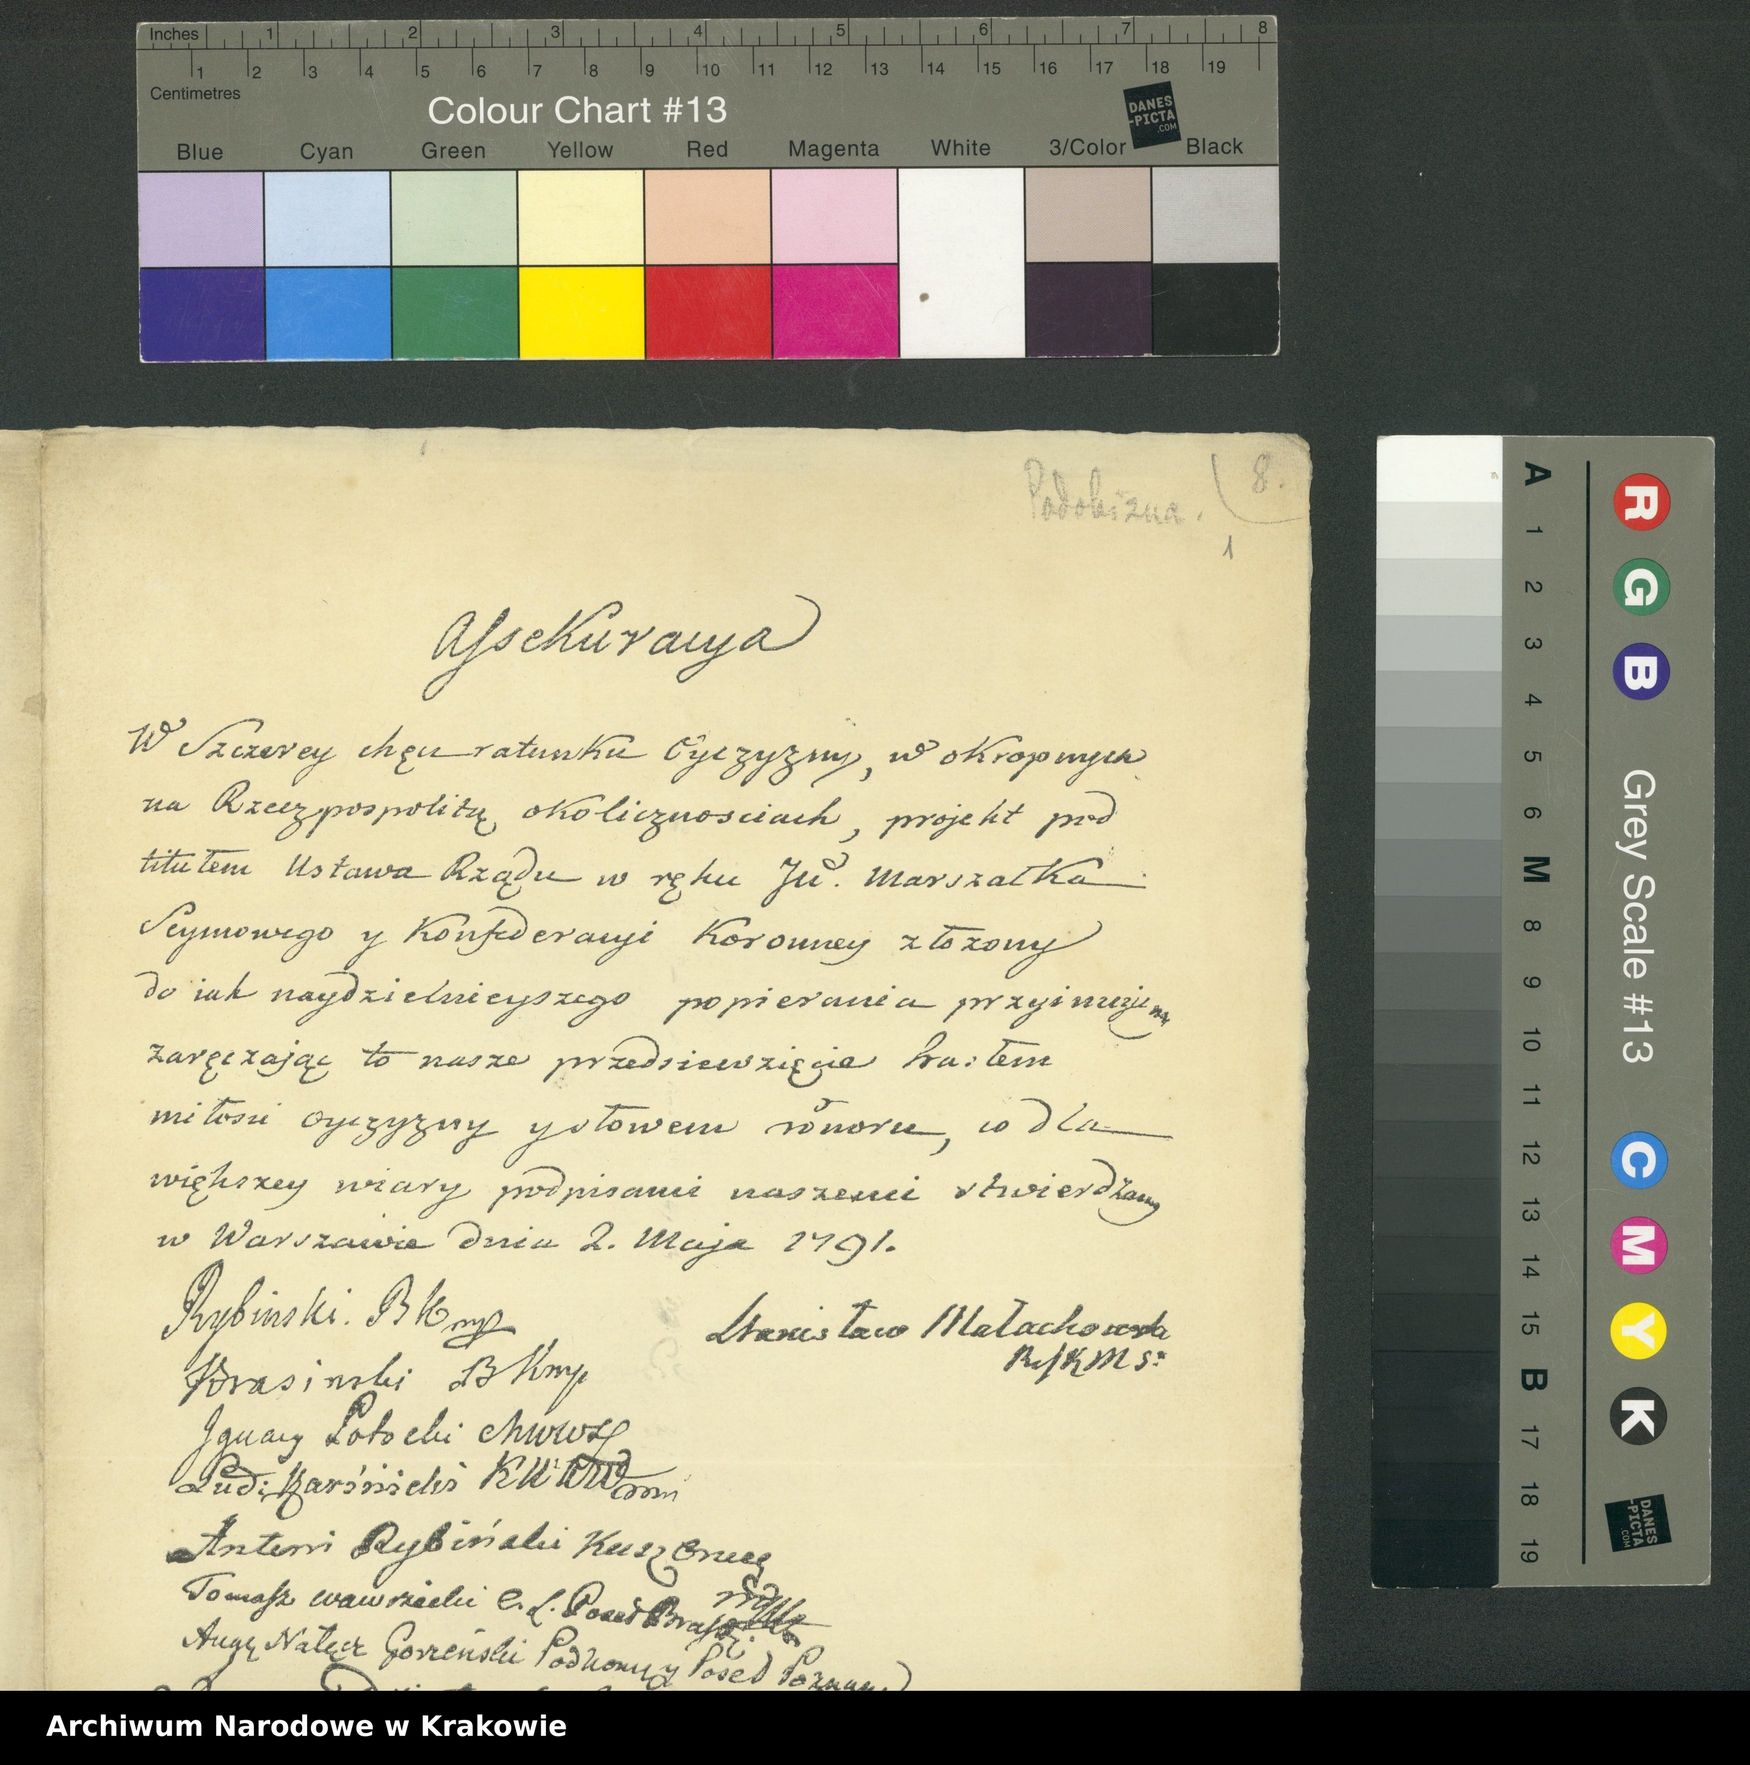 Inches 1 2 3 4 5 6 7 8
1 2 3 4 5 6 7 8 9 10 11 12 13 14 15 16 17 18 19
Centimetres
Colour Chart #13
DANES
-PICTA
.COM
Blue Cyan Green Yellow Red Magenta White 3/Color Black
Podobizna. 8.
1
Assekuracya
W Szczerey chęci ratunku Oyczyzny, w okropnych
na Rzeczpospolitą okolicznosciach, projekt pod
titułem Ustawa Rządu w ręku JW. Marszałka
Seymowego y Konfederacyi Koronney złożony
do iak naydzielnieyszego popierania przyimuiemy
zaręczając to nasze przedsięwzięcie hasłem
miłosci oyczyzny y słowem honoru, co dla
większey wiary podpisami naszemi stwierdzamy
w Warszawie dnia 2. Maja 1791.
Rybinski. BKmp
Stanisław Małachowski
RefKMS:
Krasinski BKmp
Ignacy Potocki
Antoni Rybiński
Tomasz Wawrzecki Poseł Brasł
Aug Nałęcz Gorzeński Podkomy y Poseł Poznan
A 1 2 3 4 5 6 M 8 9 10 11 12 13 14 15 B 17 18 19
R G B Grey Scale #13 C M Y K
DANES
-PICTA
.COM
Archiwum Narodowe w Krakowie